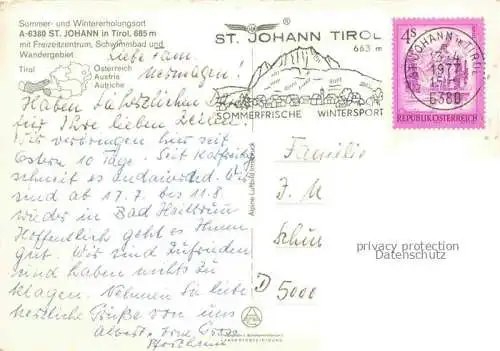 Sommer- und Wintererholungsort
A-6380 ST. JOHANN in Tirol, 685 m
mit Freizeitzentrum, Schwimmbad und
Wandergebiet
Tirol
Österreich
Austria
Autriche
ST. JOHANN TIROL
663 m
SOMMERFRISCHE WINTERSPORT
ST. JOHANN IN TIROL
1977
6380
4S
REPUBLIK ÖSTERREICH
Liebe Fam.
Haben
für Ihre lieben Zeilen!
Wir verbringen hier seit
Ostern 10 Tage. Seit
schneit es andauernd.
sind ab 17.7. bis 11.8.
wieder in Bad Heilbrun
Hoffentlich geht es Ihnen
gut. Wir sind zufrieden
und haben nichts zu
klagen. Nehmen Sie liebe
herzliche Grüße von uns
Albert
Familie
J. M
D 5000
Alpine Luftbild Innsbruck
privacy protection
Datenschutz